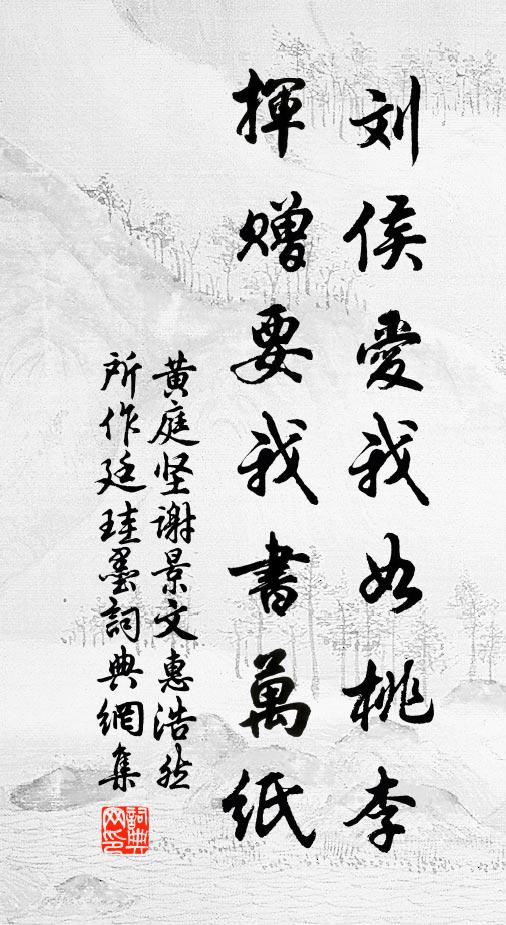 刘侯愛我如桃李
揮贈要我書萬紙
黄庭坚谢景文惠浩然
所作廷珪墨詞典網集
詞典网印